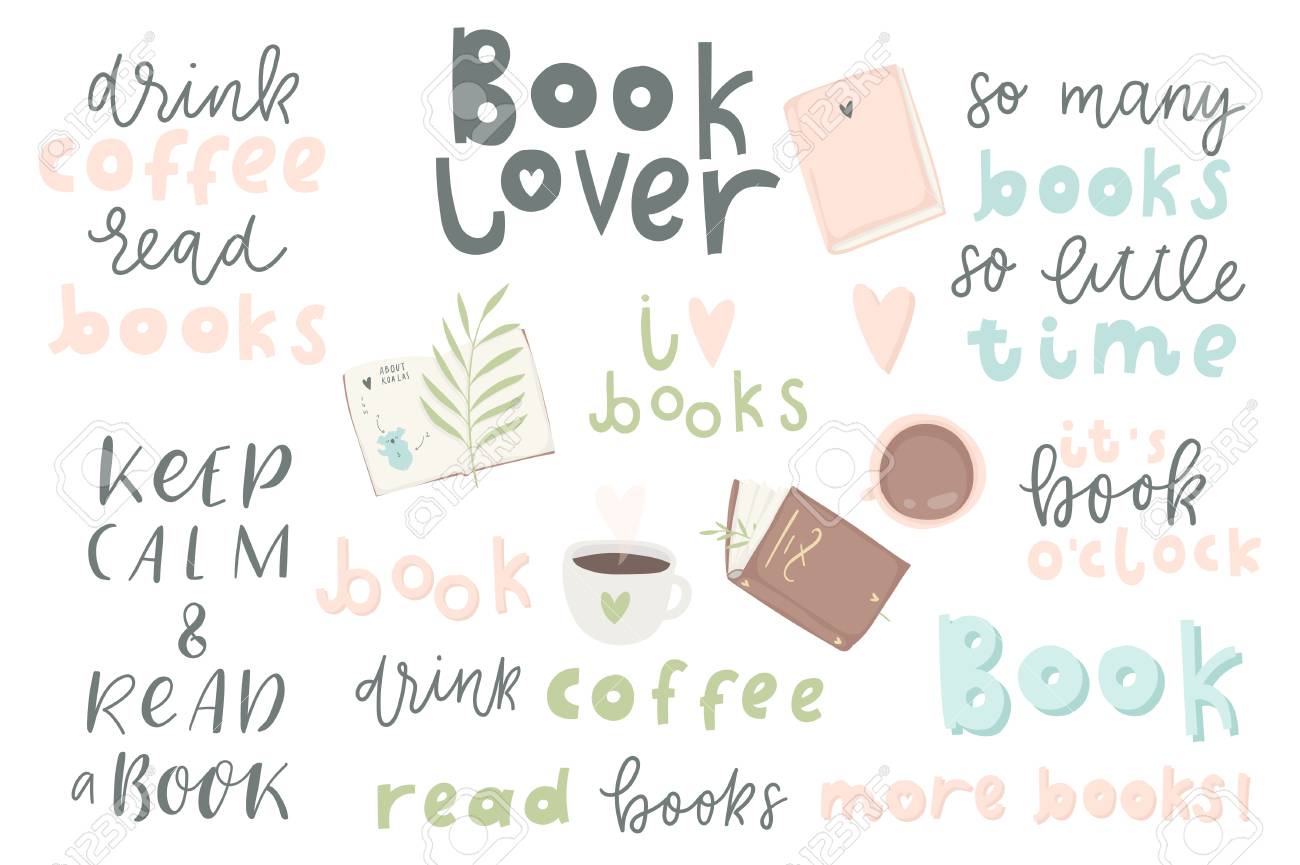 drink
coffee
read
books
Book
Lover
so many
books
so little
time
i
books
ABOUT
KOALAS
1
2
KEEP
CALM
&
READ
a BOOK
book
it's
book
o'clock
drink coffee
read books
Book
more books!
123RF